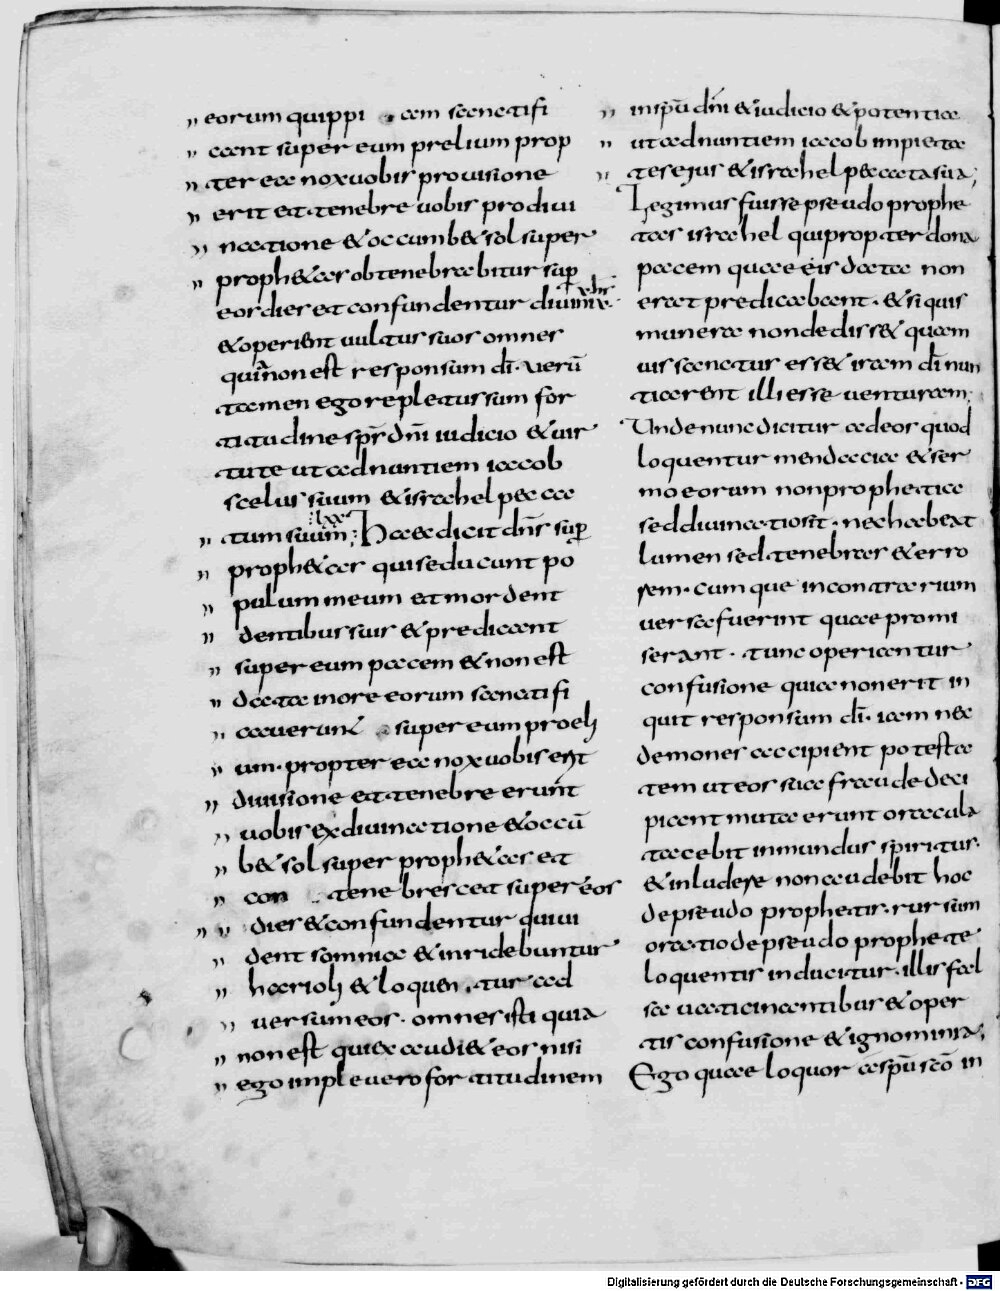 „ eorum quippi am sanctifi
„ cant super eum prelium prop
„ ter ea nox vobis pro visione
„ erit et tenebre vobis pro divi
„ natione & occumb& sol super
„ proph&as obtenebrabitur sup̄
eos dies et confundentur divini
& operient vultus suos omnes
quia non est responsum dī. verū
tamen ego repletus sum for
titudine spr̄ dn̄i iudicio & vir
tute ut adnuntiem iacob
scelus suum & israhel pecca
„ tum suum; lxx Haec dicit dn̄s sup̄
„ proph&as qui seducunt po
„ pulum meum et mordent
„ dentibus suis & predicant
„ super eum pacem & non est
„ data in ore eorum sanctifi
„ caverunt super eum proeli
„ um. propter ea nox vobis erit
„ divisione et tenebre erunt
„ vobis ex divinatione & occū
„ b& sol super proph&as et
„ con tenebrescet super eos
„ dies & confundentur qui vi
„ dent somnia & inridebuntur
„ harioli & loquentur ad
„ versum eos. omnes isti quia
„ non est qui exaudi& eos nisi
„ ego impleuero fortitudinem
„ in spū dn̄i & iudicio & potentia
„ ut adnuntiem iacob impieta
„ tes ejus & israhel peccata sua;
Legimus fuisse pseudo prophe
tas israhel qui propter dona
pacem quae eis data non
erat predicabant. & si quis
munera non dediss& quam
vis sanctus ess& iram dī nun
tiarent illi esse venturam;
Unde nunc dicitur ad eos quod
loquentur mendacia & ser
mo eorum non prophetia
sed divinatio sit. nec habeat
lumen sed tenebras & erro
rem. cumque in contrarium
versa fuerint quae promi
serant. tunc operientur
confusione quia non erit in
quit responsum dī. iam nec
demones accipient potesta
tem ut eos sua fraude deci
piant muta erunt oracula
tacebit inmundus spiritus.
& inludere non audebit hoc
de pseudo prophetis. rursum
oratio de pseudo prophete
loquentis inducitur. illis fal
sa vaticinantibus & oper
tis confusione & ignominia;
Ego quae loquor a spū scō in
Digitalisierung gefördert durch die Deutsche Forschungsgemeinschaft - DFG